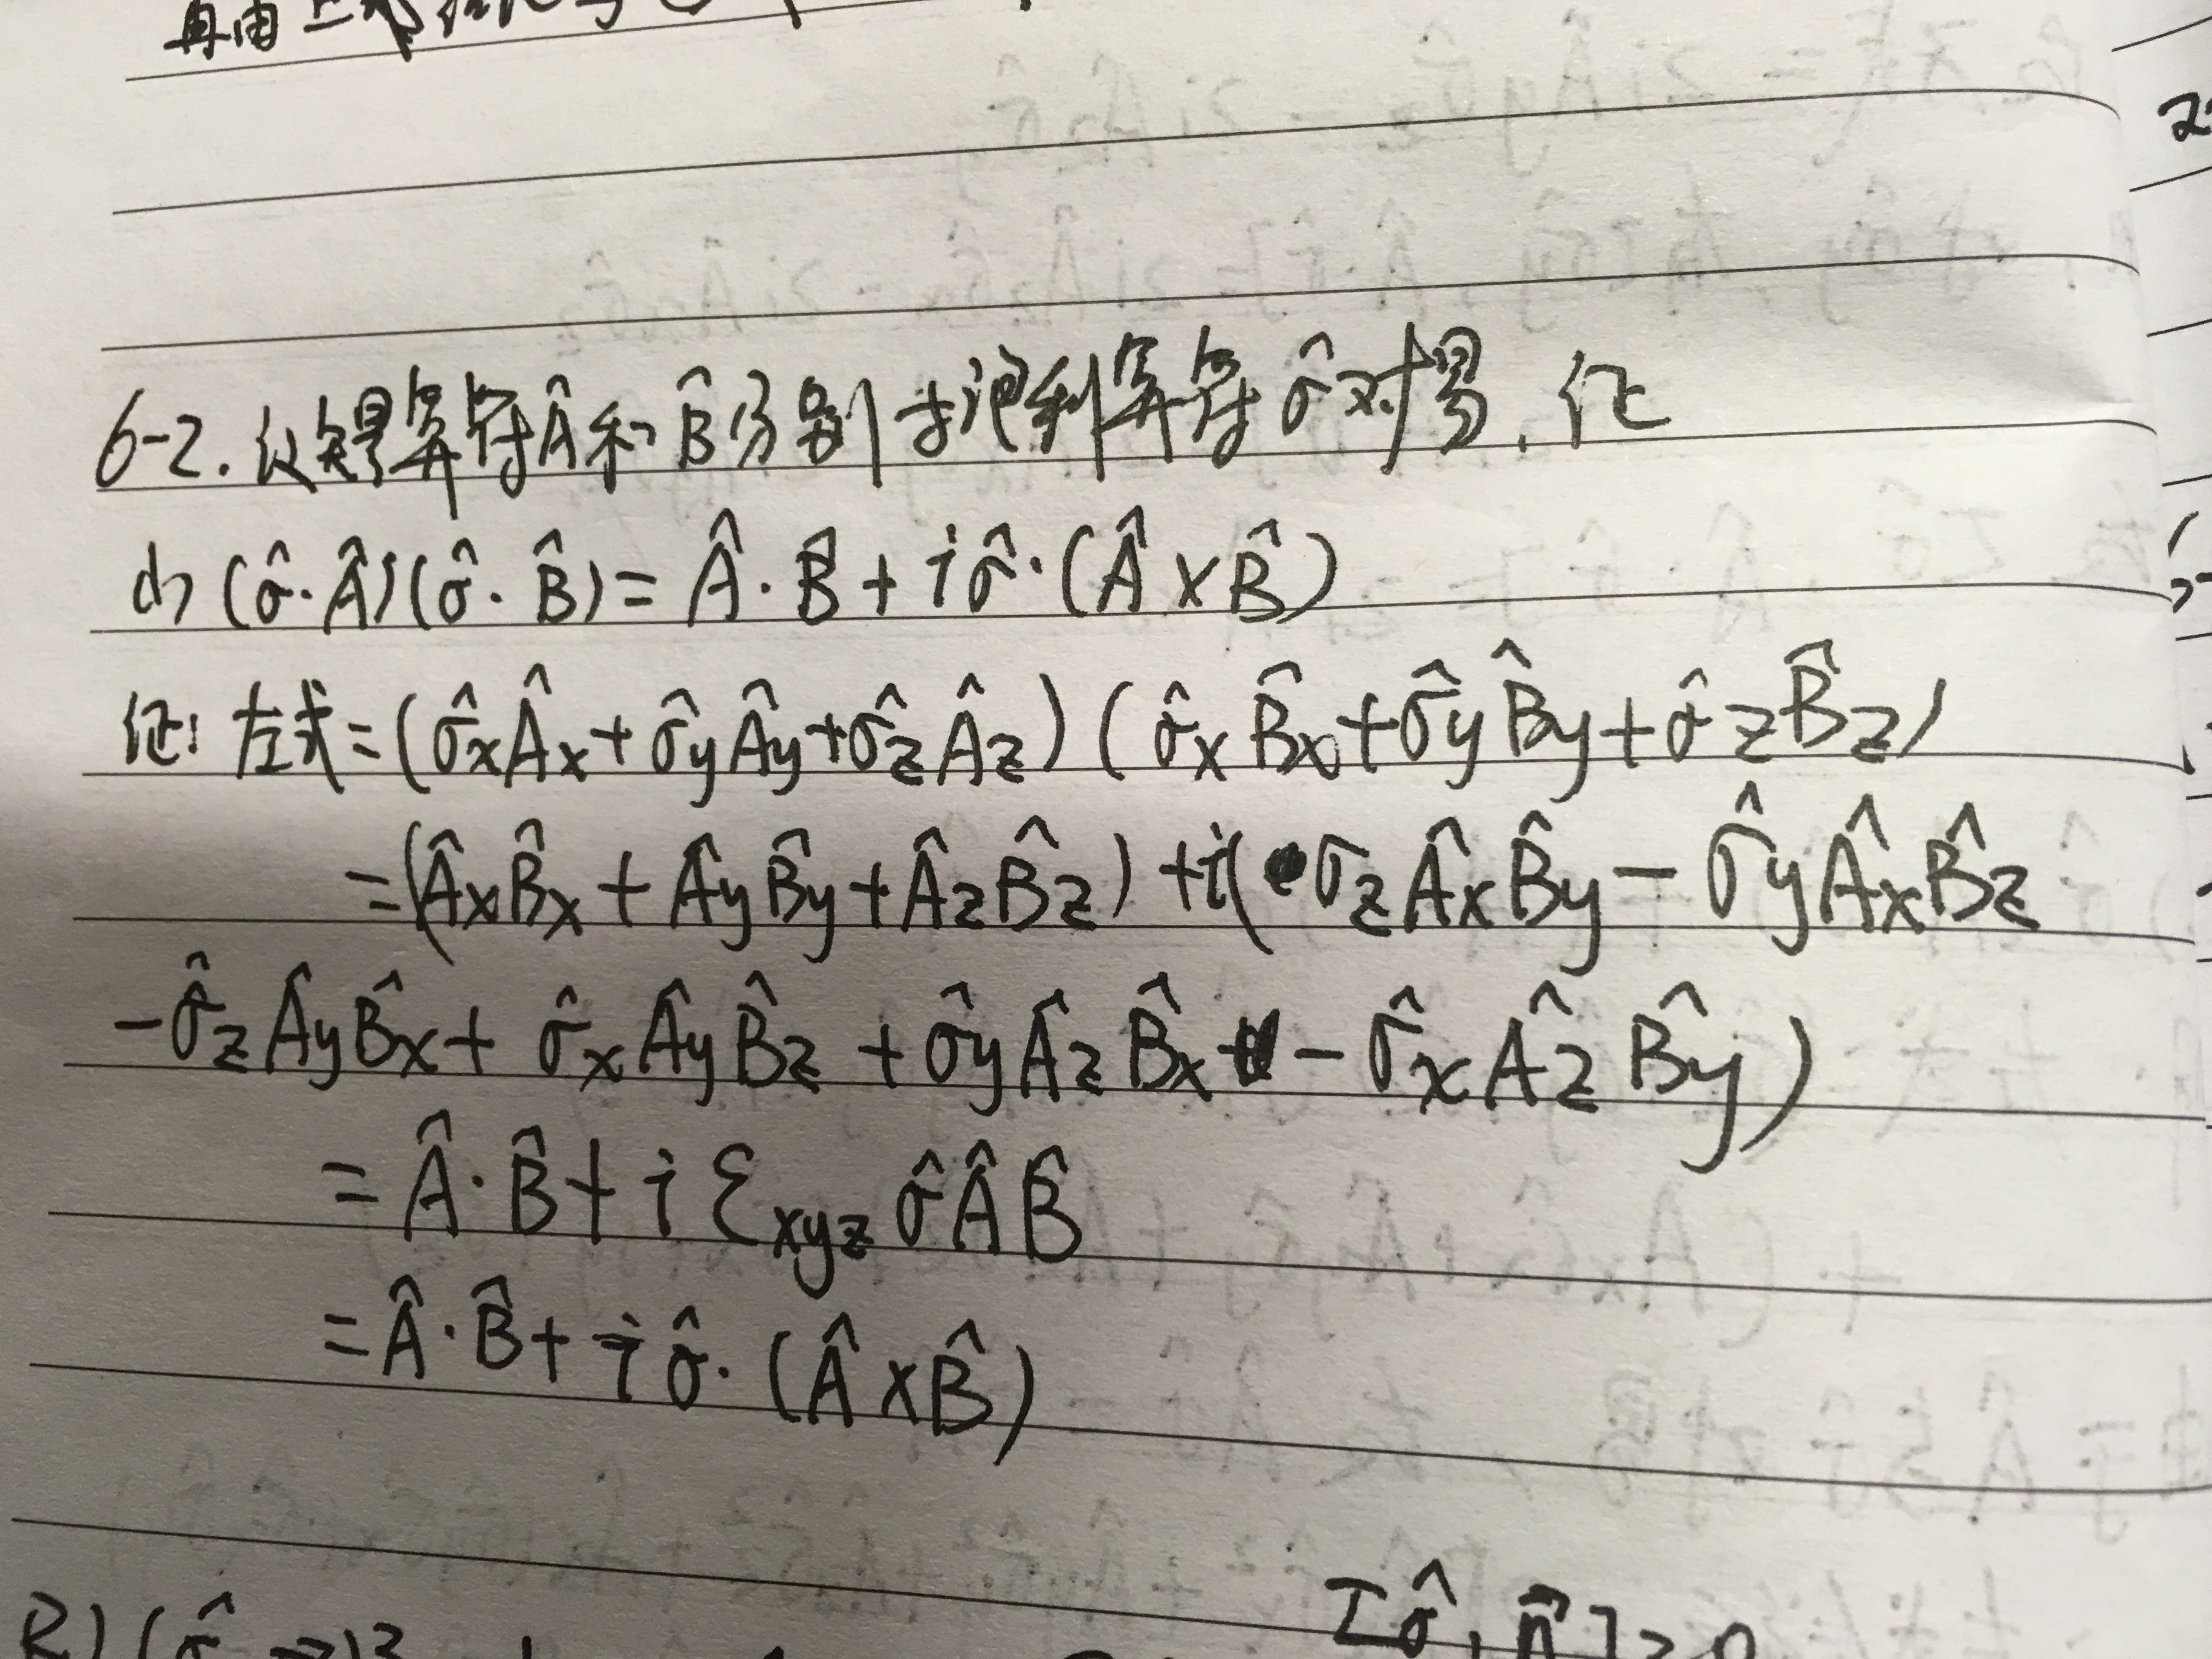 再由上式
6-2. 设矢量算符Â和B̂分别与泡利算符σ̂对易, 证
(1) (σ̂·Â)(σ̂·B̂) = Â·B̂ + iσ̂·(Â×B̂)
证: 左式=(σ̂xÂx+σ̂yÂy+σ̂zÂz)(σ̂xB̂x+σ̂yB̂y+σ̂zB̂z)
=(ÂxB̂x+ÂyB̂y+ÂzB̂z)+i(σzÂxB̂y-σ̂yÂxB̂z
-σ̂zÂyB̂x+σ̂xÂyB̂z+σ̂yÂzB̂x-σ̂xÂzB̂y)
=Â·B̂+iεxyzσ̂ÂB̂
=Â·B̂+iσ̂·(Â×B̂)